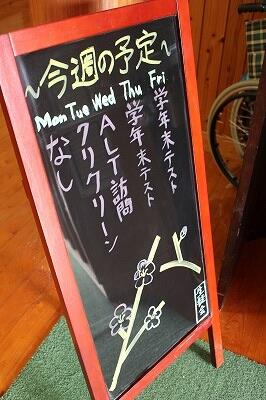 ～今週の予定～
Mon Tue Wed Thu Fri
なし
クリクリーン
ALT訪問
学年末テスト
学年末テスト
生徒会